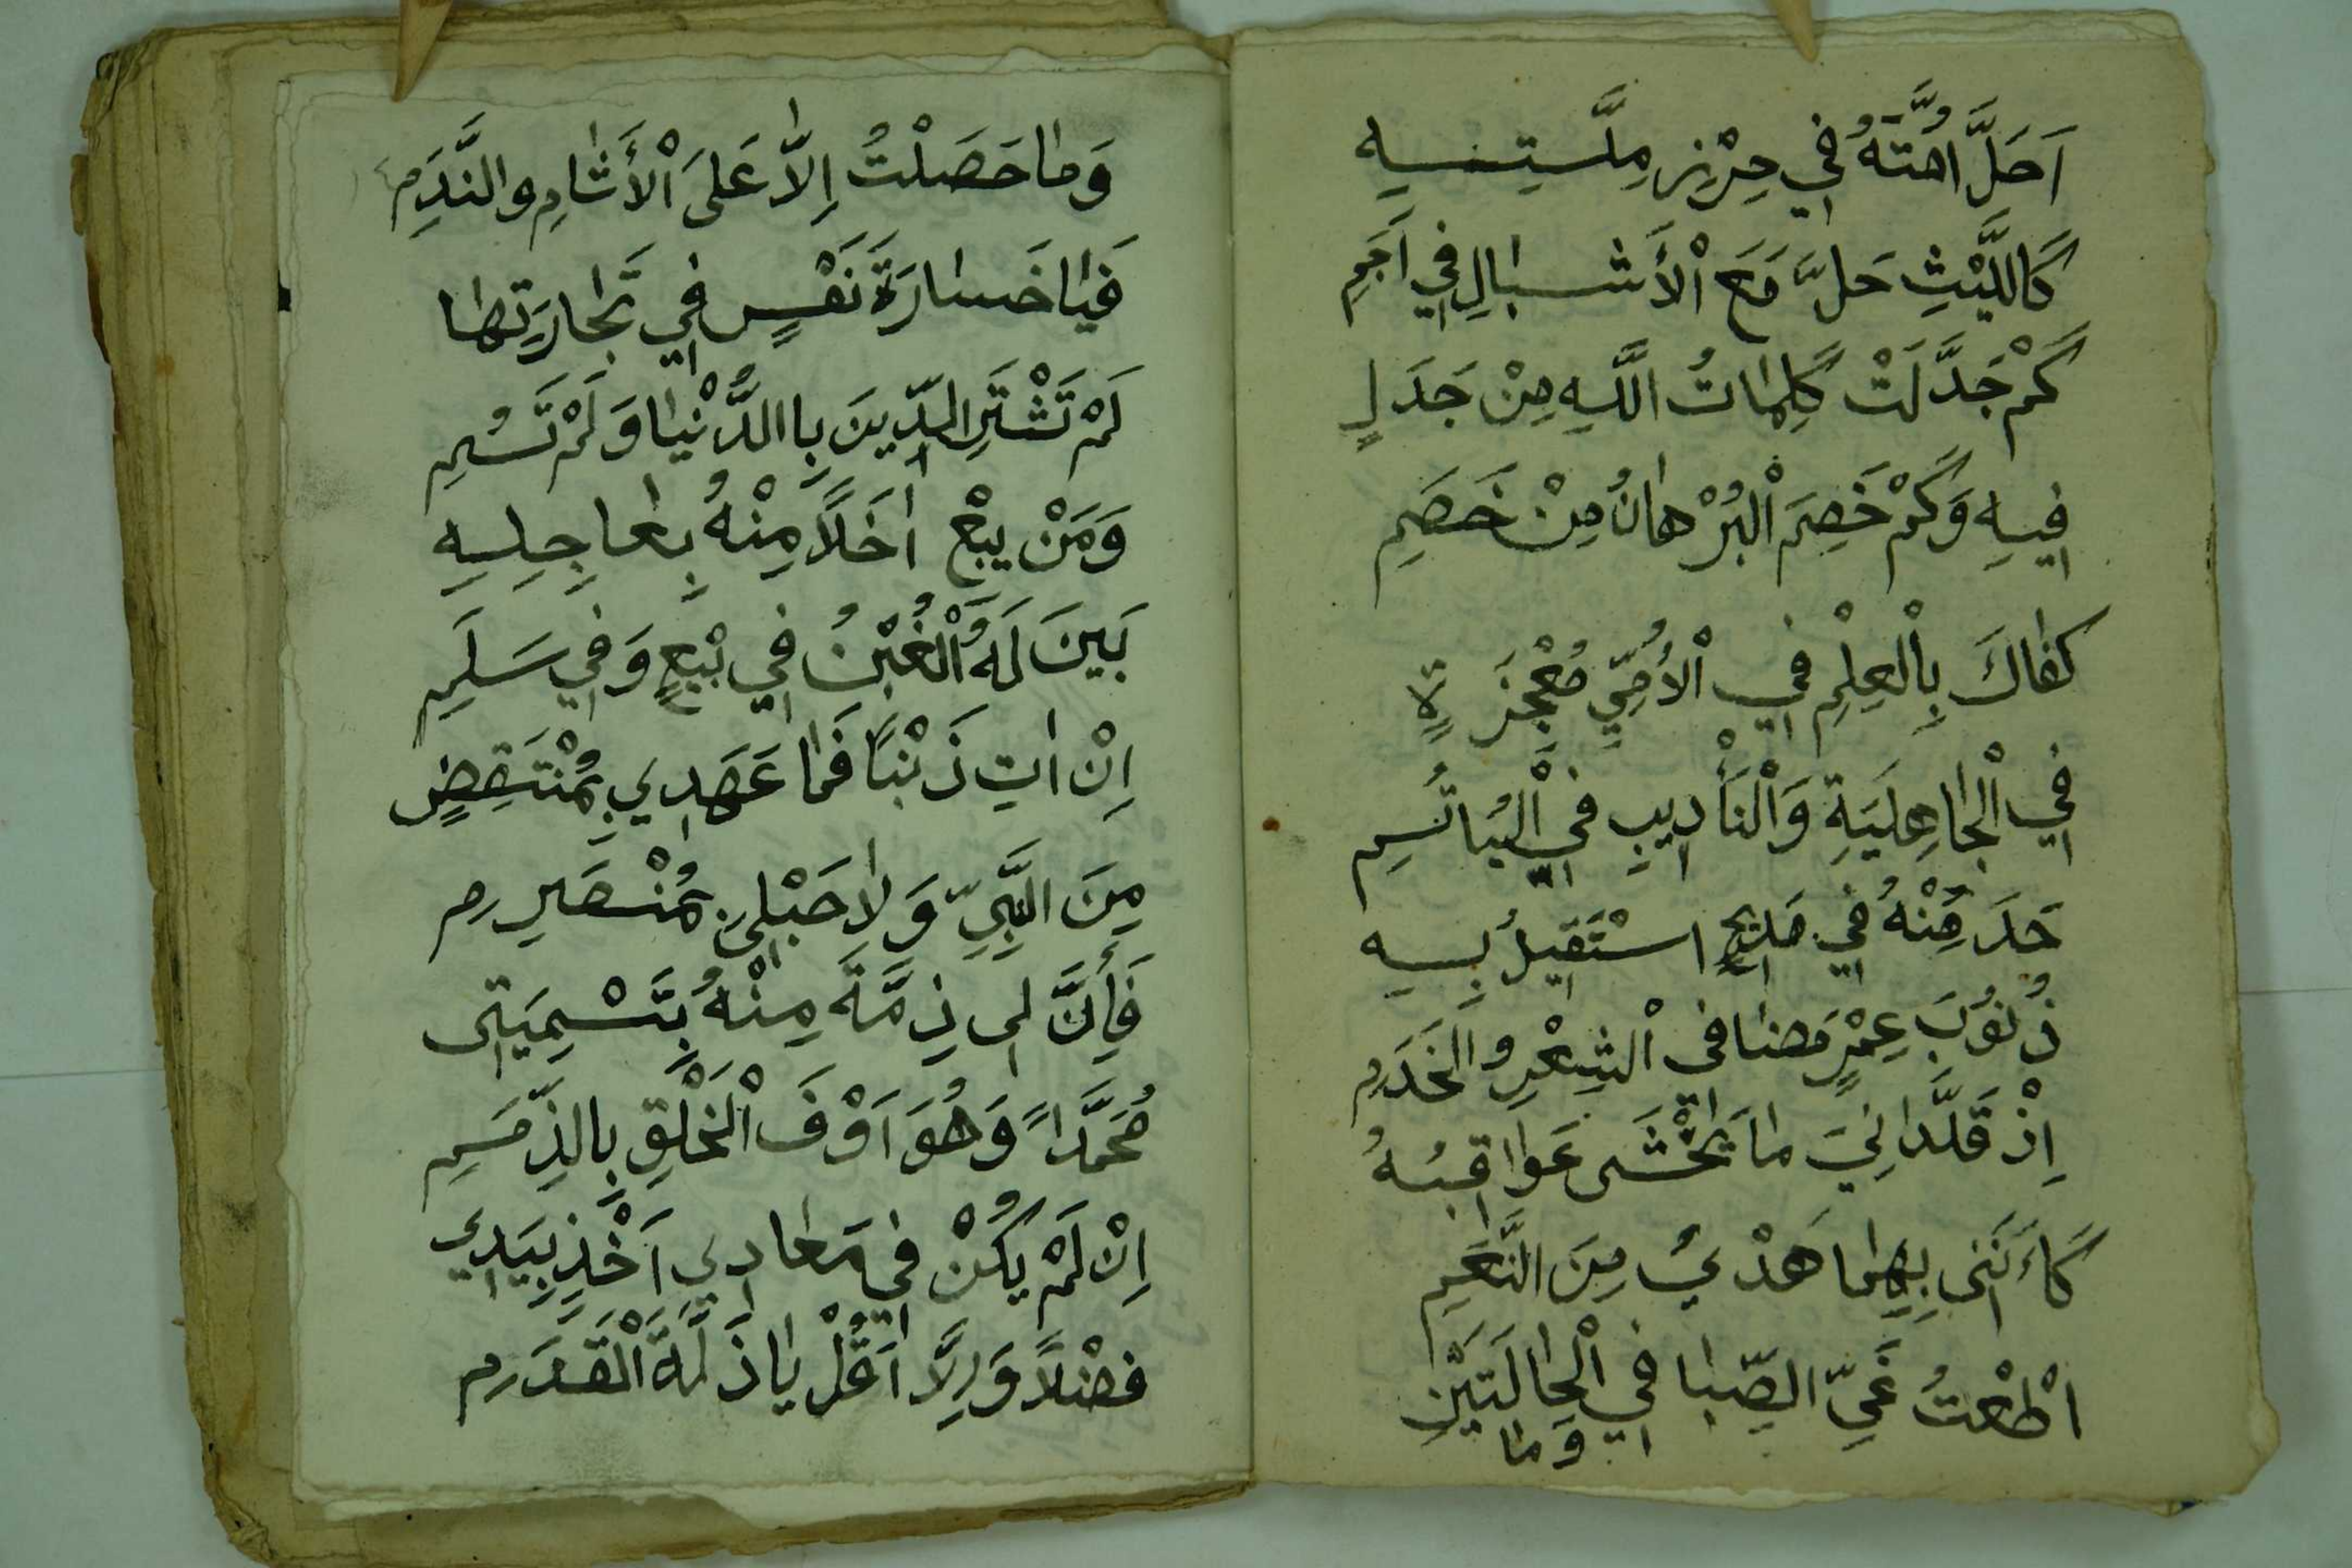 اَحَلَّ اُمَّتَهُ فِي حِرْزِ مِلَّتِسِهِ
كَاللَّيْثِ حَلَّ مَعَ الْأَشْبَالِ فِي اَجَمِ
كَمْ جَدَّلَتْ كَلِمَاتُ اللَّهِ مِنْ جَدَلٍ
فِيهِ وَكَمْ خَصِمَ الْبُرْهَانُ مِنْ خَصَمِ
كَفَاكَ بِالْعِلْمِ فِي الْأُمِّيِّ مُعْجِزَةً
فِي الْجَاهِلِيَةِ وَالْتَأْدِيبِ فِي الْيُتُمِ
خَدَمْتُهُ فِي مَدِيحٍ اسْتَقِيلُ بِهِ
ذُنُوْبَ عِمْرٍ مَضَا فِى الْشِعْرِ والْخَدَمِ
اِذْ قَلَّدَانِيَ مَا يَخْشَى عَوَاقِبُهُ
كَأَنَنِى بِهِمَا هَدْيٌ مِنَ النَّعَمِ
اطْعْتُ غَيِّ الصِّبَا فِي الْحَالَتَيْنِ
وَمَا
وَمَا حَصَلْتُ اِلاَّ عَلَى الْأَثَامِ والنَّدَمِ
فَيَا خَسَارَةَ نَفْسٍ فِي تَجَارَتِهَا
لَمْ تَشْتَرِ الدِّينَ بِاالدُّنْيَا وَلَمْ تَسُمِ
وَمَنْ يَبِعْ اٰخَلاً مِنْهُ بِعَاجِلِهِ
بَيِنَ لَهُ الْغُبْنُ فِي بْيعٍ وَفِي سَلَمِ
اِنْ اٰتِ ذَنْبًا فَمَا عَهَدِي بِمُنْتَقِضٍ
مِنَ النَّبِيِّ وَلَا حَبْلِى بِمُنْصَرِمِ
فَأِنَّ لِى ذِمَّةَ مِنْهُ بِتَسْمِيَتِى
مُحَمَّداً وَهُوَ اَوْفَ الْخَلْقِ بِالذِّمَمِ
اِنْ لَمْ يَكُنْ فِي مَعَادِي اَخْذٍ بِيَدِي
فضْلاً وَاِلَّا فَقُلْ يَا ذَلَّةَ الْقَدَمِ